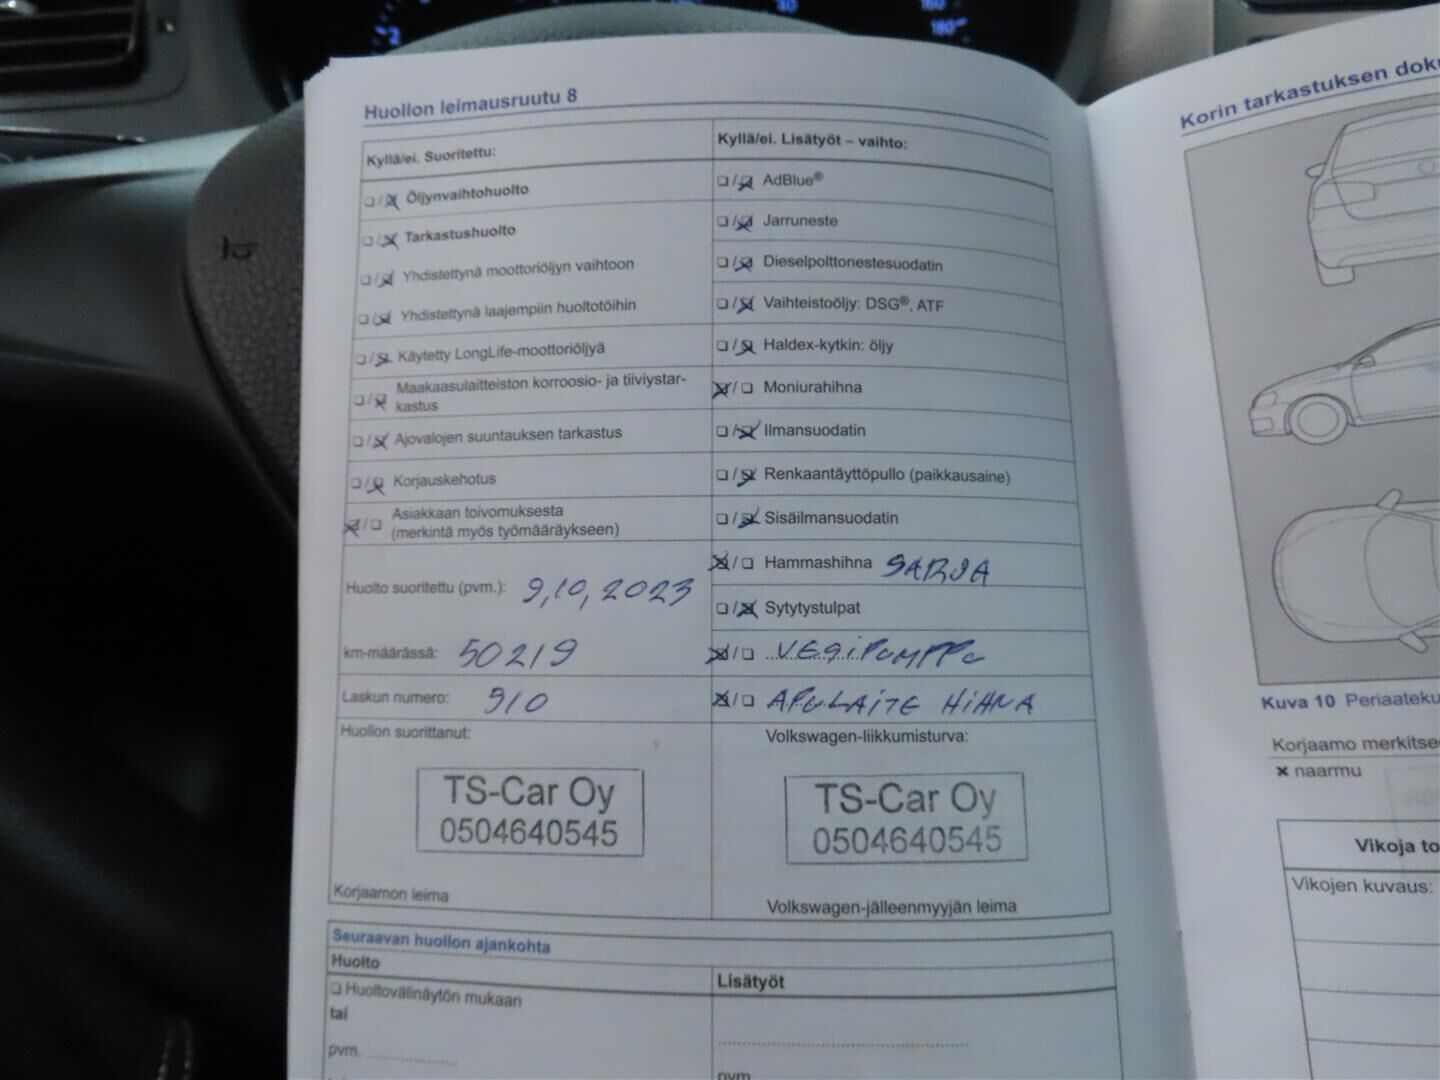 160
180
Huollon leimausruutu 8
Kyllä/ei. Suoritettu:
☐/☒ Öljynvaihtohuolto
☐/☒ Tarkastushuolto
☐/☒ Yhdistettynä moottoriöljyn vaihtoon
☐/☒ Yhdistettynä laajempiin huoltotöihin
☐/☒ Käytetty LongLife-moottoriöljyä
☐/☒ Maakaasulaitteiston korroosio- ja tiiviystar-
kastus
☐/☒ Ajovalojen suuntauksen tarkastus
☐/☒ Korjauskehotus
☒/☐ Asiakkaan toivomuksesta
(merkintä myös työmääräykseen)
Huolto suoritettu (pvm.): 9,10,2023
km-määrässä: 50219
Laskun numero: 910
Huollon suorittanut:
TS-Car Oy
0504640545
Korjaamon leima
Kyllä/ei. Lisätyöt – vaihto:
☐/☒ AdBlue®
☐/☒ Jarruneste
☐/☒ Dieselpolttonestesuodatin
☐/☒ Vaihteistoöljy: DSG®, ATF
☐/☒ Haldex-kytkin: öljy
☒/☐ Moniurahihna
☐/☒ Ilmansuodatin
☐/☒ Renkaantäyttöpullo (paikkausaine)
☐/☒ Sisäilmansuodatin
☒/☐ Hammashihna SARJA
☐/☒ Sytytystulpat
☒/☐ VESiPUMPPU
☒/☐ APULAiTE HiHNA
Volkswagen-liikkumisturva:
TS-Car Oy
0504640545
Volkswagen-jälleenmyyjän leima
Seuraavan huollon ajankohta
Huolto
☐ Huoltovälinäytön mukaan
tai
pvm.
Lisätyöt
pvm
Korin tarkastuksen
Kuva 10
Korjaamo
× naarmu
Vikoja
Vikojen kuvaus: